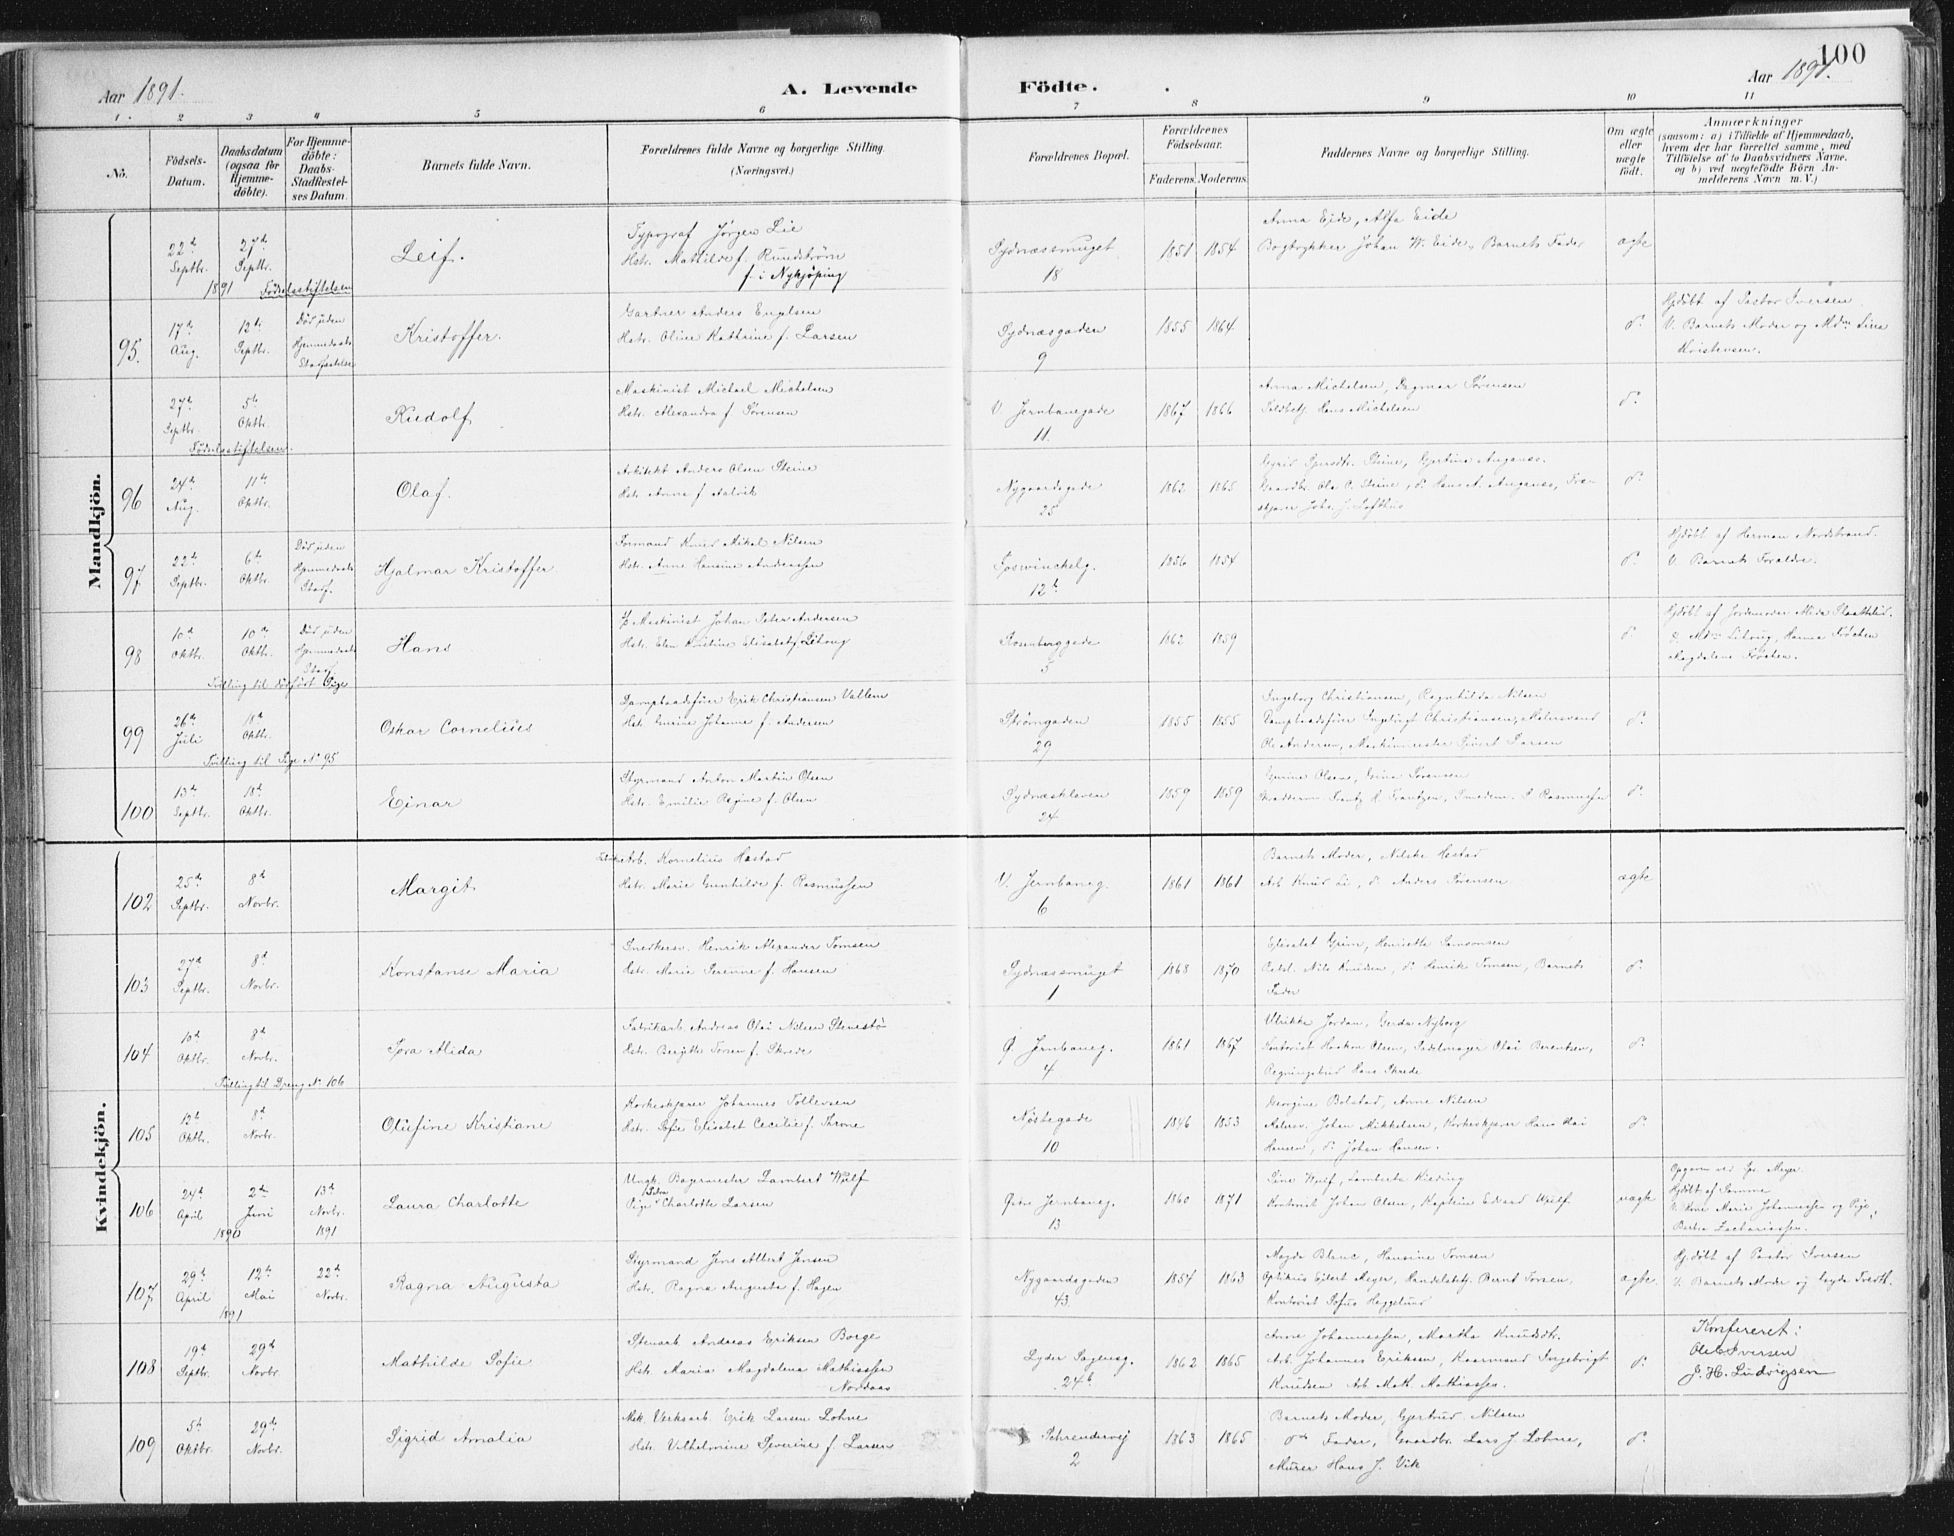 100
Aar 1891.
A. Levende
Födte.
Aar 1891.
1.
2
3
4
5
6
7
8
9
10
11
No.
Födsels-Datum.
Daabsdatum (ogsaa for Hjemme-döbte).
For Hjemme-döbte: Daabs-Stadfæstel-ses Datum.
Barnets fulde Navn.
Forældrenes fulde Navne og borgerlige Stilling.
(Næringsvei.)
Forældrenes Bopæl.
Forældrenes Födselsaar.
Faderens. Moderens.
Faddernes Navne og borgerlige Stilling.
Om ægte eller uægte födt.
Anmærkninger
(saasom: a) i Tilfælde af Hjemmedaab,
hvem der har forrettet samme, med
Tilföielse af to Daabsvidners Navne,
og b) ved uægtefödte Börn An-
melderens Navn m. V.)
Mandkjön.
22de Septbr.
27de Septbr.
1891 Födselsstiftelsen
Leif.
Typograf Jørgen Lie
Hstr. Mathilde f. Rundström
f. i Nykjöping
Sydnæssmuget
18
1851 1854
Anna Eide, Alfa Eide
Bogtrykker Johan W. Eide, Barnets Fader
ægte
95.
17de Aug.
12te Septbr.
Död uden Hjemmedaabs Stadfæstelse
Kristoffer.
Gartner Anders Engelsen
Hstr. Oline Kathrine f. Larsen
Sydnæsgaden
9
1855 1864
do
Hjdöbt af Pastor Iversen.
V. Barnets Moder og Mdm Lina
Kristensen.
27de Septbr.
5te Oktbr.
Födselsstiftelsen.
Rudolf
Maskinist Michael Michelsen
Hstr. Alexandra f. Sörensen
V. Jernbanegade
11.
1867 1866
Anna Michelsen, Dagmar Sörensen
Hans Michelsen
do
96
24de Aug.
11te Oktbr.
Olaf.
Arkitekt Anders Olsen Steine
Hstr. Anna f. Aalvik
Nygaardsgade
25
1862 1865
Steine, Gjertine Auganæs.
Gaardbr. Ola O. Steine, do Hans A. Auganæs,
Joh. J. Lofthus
do
97
22de Septbr.
6te Oktbr.
Död uden Hjemmedaabs Stadf.
Hjalmar Kristoffer.
Formand Knud Mikal Nilsen
Hstr. Anne Hansine Andreassen
12b
1856 1854
do
Hjdöbt af Herman Nordstrand.
V. Barnets Forældre.
98
10de Oktbr.
10de Oktbr.
Död uden Hjemmedaabs Stadf.
Tvilling til dödfödt Pige
Hans
Maskinist Johan Peter Andersen
Hstr. Elen Kristine Elisabeth
Rosenberggade
5
1862 1859
do
Hjdöbt af Jordemoder
Magdalene
99
26de Juli
18de Oktbr.
Tvilling til Pige No 95
Oskar Cornelius
Dampbaadsförer Erik Christiansen Vallem
Hstr. Gurine Johanna f. Andersen
Strömgaden
29
1855 1855
Ingeborg Christiansen, Ragnhilda Nilsen
Dampbaadsförer Ingebrigt Christiansen, Malersvend
Ole Andersen, Maskinmester Sjvert Larsen
do
100
13de Septbr.
18de Oktbr.
Einar
Styrmand Anton Martin Olsen
Hstr. Emilie Regine f. Olsen
Sydnæskleven
24
1859 1859
Gurine Olsen, Sörensen
Frantz H. Frantzen, Rasmussen
do
Kvindekjön.
102
25de Septbr.
8de Novbr.
Margit.
Arb. Kornelius Hæstad
Hstr. Marie Gunhilde f. Rasmussen
V. Jernbaneg.
6
1861 1861
Barnets Moder, Nilske Hestad
Arb. Knud Li, do Anders Sörensen
ægte
103
27de Septbr.
8de Novbr.
Konstanse Maria
Snedkersv. Henrik Alexander Tomsen
Hstr. Marie Serine f. Hansen
Sydnæssmuget
1
1868 1870
Elisabet Grim, Henriette Samsonsen
Nils Knudsen, do Henrik Tomsen, Barnets
Fader
do
104
10de Oktbr.
8de Novbr.
Tvilling til Dreng No 106
Tora Alida
Fabrikarb. Andreas Olai Nilsen Stenestö
Hstr. Birgitte f. Skrede
Ø. Jernbaneg.
4
1861 1867
Ulrikke Jordan, Gerda Nyborg
Kontorist Haakon Olsen, Sadelmager Olai Berentsen,
Regningsbud Hans Skrede
do
105
12te Oktbr.
8de Novbr.
Olufine Kristiane
Korkeskjærer Johannes Tollevsen
Hstr. Sofie Elisabet Cecilie f. Krone
Nöstegade
10
1846 1853
Georgine Bolstad, Anne Nilsen
Malersv. Johan Mikkelsen, Korkeskjærer Hans Kai
Hansen, do Johan Hansen.
do
106
24de April
2den Juni
1890
13de Novbr.
1891
Laura Charlotte
Ungk. Bagmester Lambert Wulf
Pige Petra Charlotte Larsen
Østre Jernbaneg.
13
1860 1871
Line Wulf, Lamberta Kieding
Kontorist Johan Olsen, Kaptein Edvard Wulf
uægte
Opgaven ved Meyer.
Hjdöbt af Samme
V. Marie Johannessen og Pige
Zachariassen.
107
29de April
12te Mai
1891
22de Novbr.
Ragna Augusta
Styrmand Jens Albert Jensen
Hstr. Ragna Augusta f. Hagen
Nygaardsgaden
43.
1854 1863
Magda Blanc, Hansine Tomsen
Optikus Eilert Meyer, Handelsbetj. Bernt Tomsen,
Kontorist Sofus Heggelund
ægte
Hjdöbt af Pastor Iversen
V. Barnets Moder og
108
19de Septbr.
29de Novbr.
Mathilde Sofie
Stenarb. Andreas Eriksen Borge
Hstr. Maria Magdalena Mathiassen
Nordaas
Lyder Sagensg.
24b
1862 1865
Anne Johannessen, Martha Knudsdtr.
Arb. Johannes Eriksen, Ingebrigt
Knudsen Arb. Math. Mathiassen.
do
Konfereret:
Ole Iversen
J. H. Ludvigsen
109
5te Oktbr.
29de Novbr.
Sigrid Amalia
Mek. Verksarb. Erik Larsen Lohne
Hstr. Vilhelmine Severine f. Larsen
2
1863 1865
Barnets Moder, Gjertrud Nilsen
do Fader, Gaardbr. Lars J. Lohne,
Murer Hans J. Vik
do